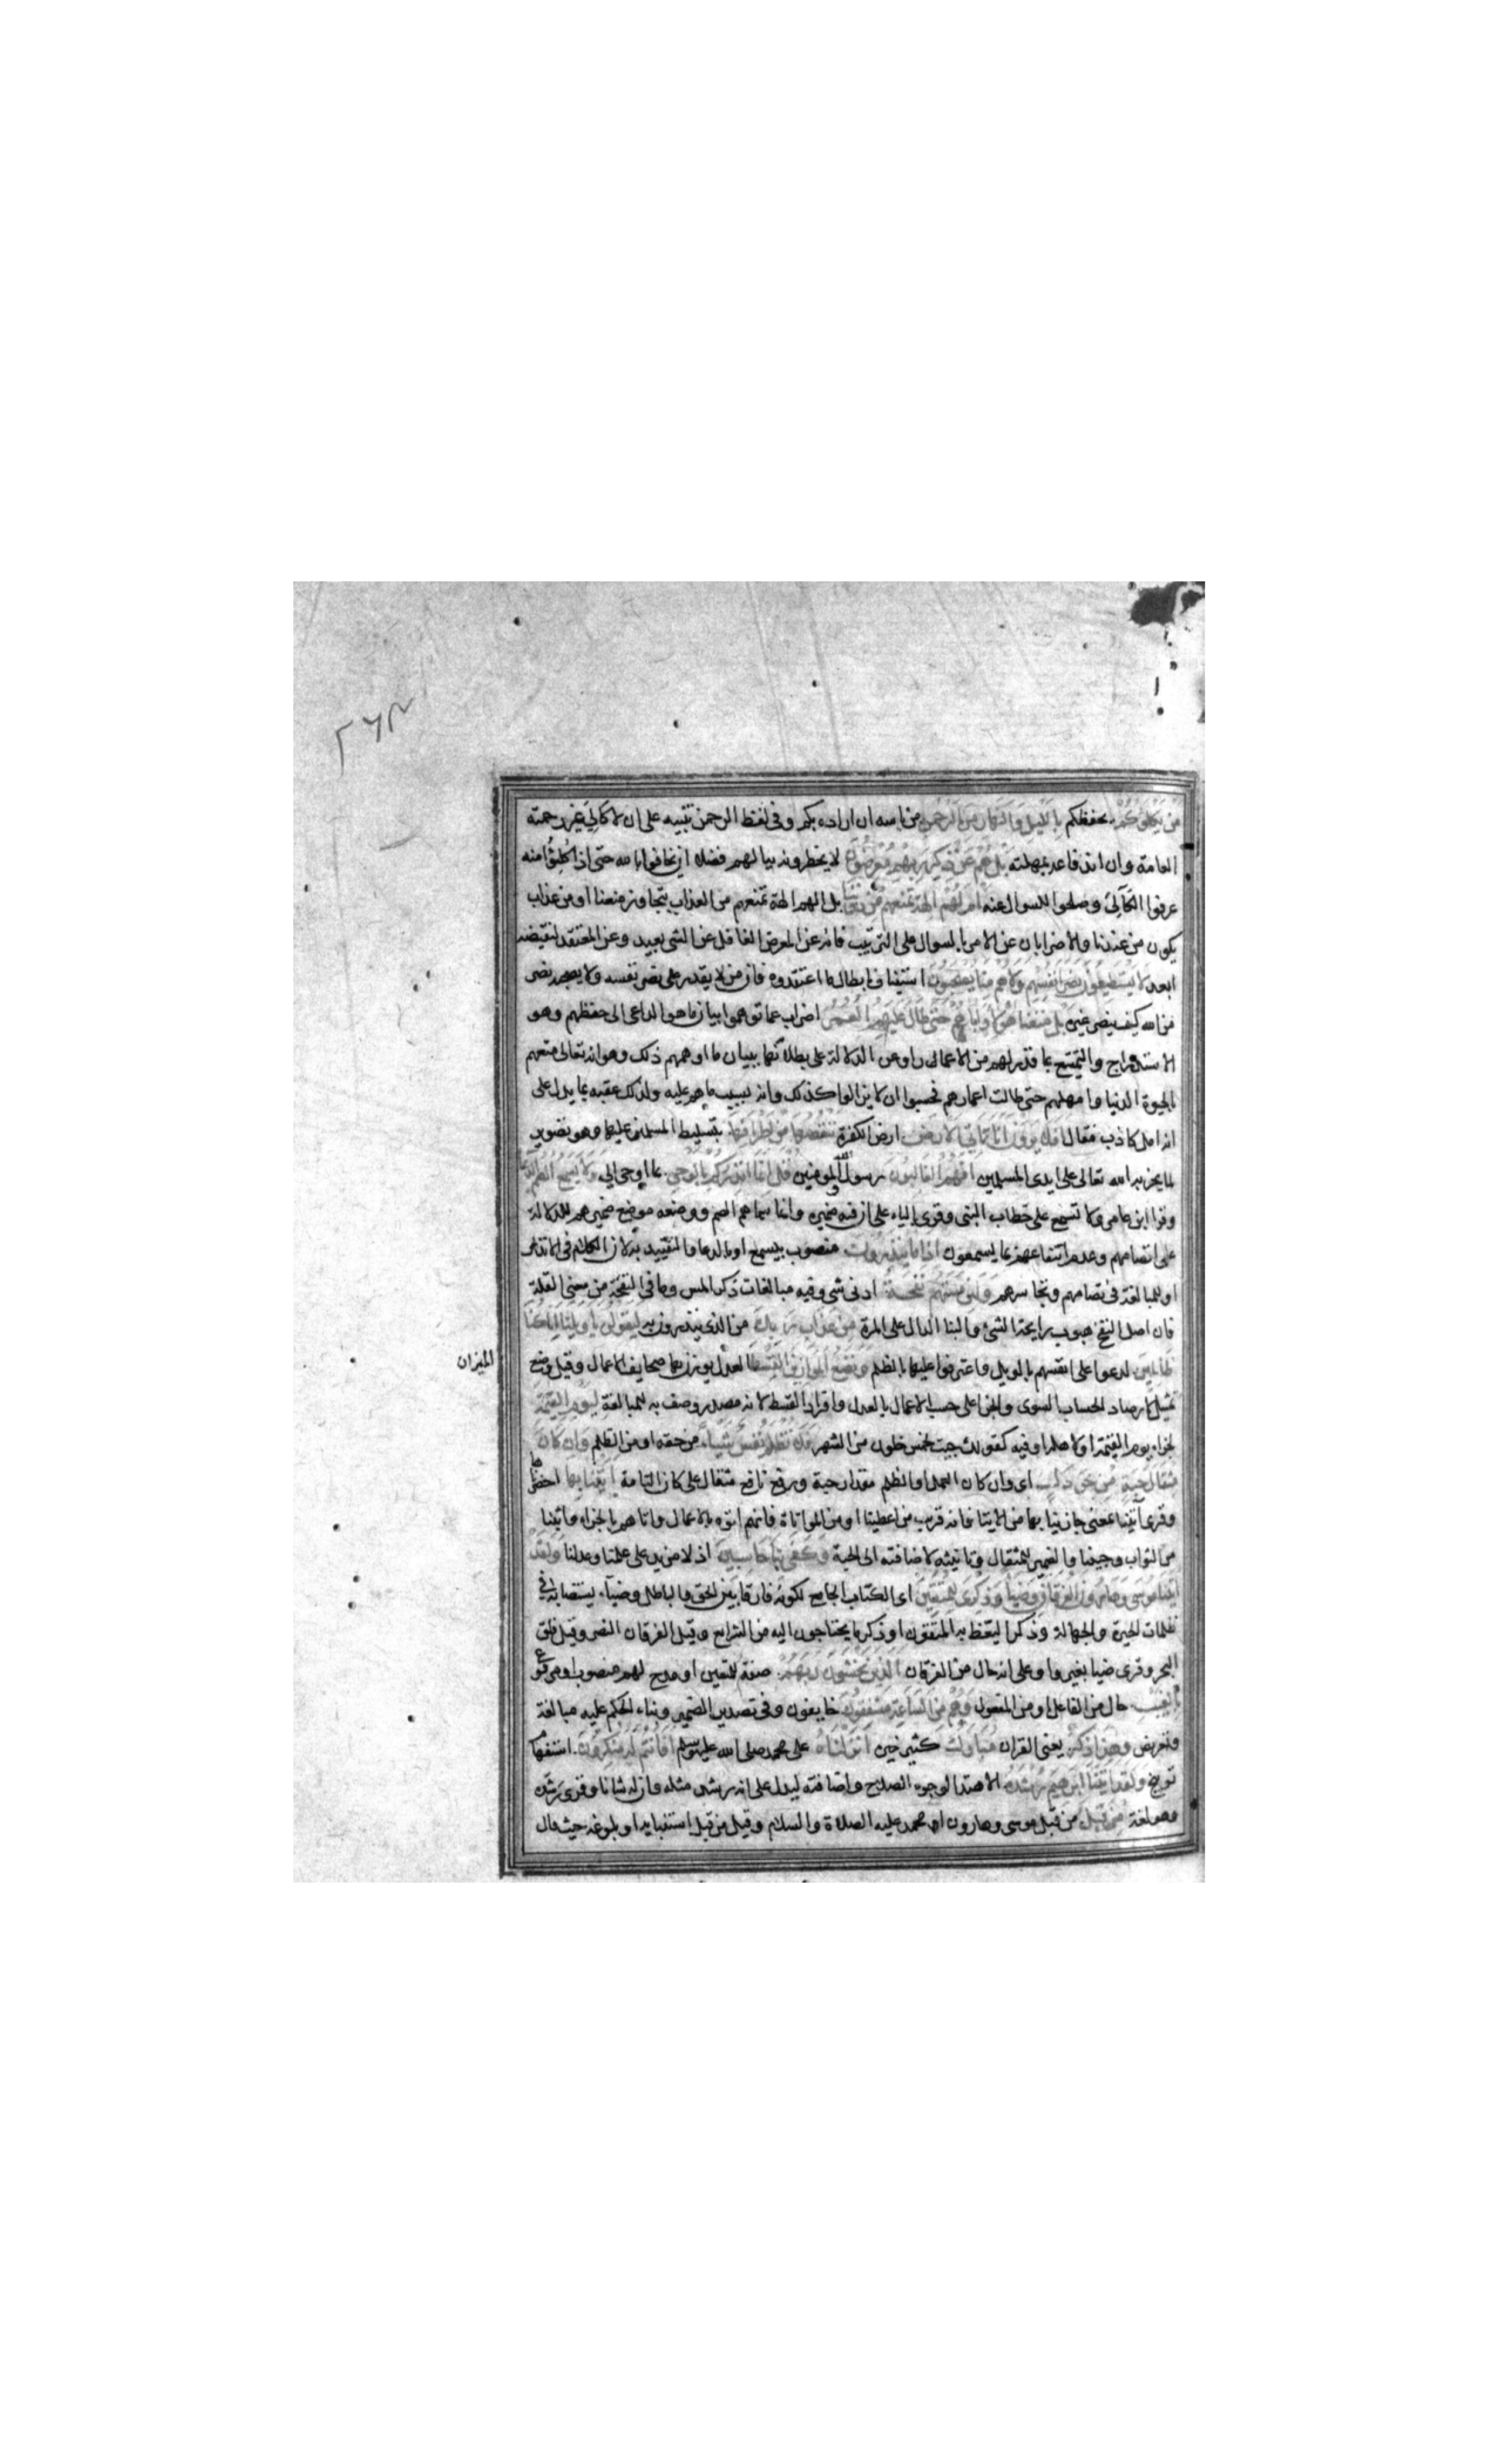 من يكلؤكم يحفظكم بالليل والنهار من الرحمن من باسه ان اراده بكم وفى لفظ الرحمن تنبيه على ان لا كالئ غير رحمته
العامة وان اندفاعه بمهلته بل هم عن ذكر ربهم معرضون لا يخطرونه ببالهم فضلا ان يخافوا باسه حتى اذا كلؤا منه
عرفوا الكالئ وصلحوا للسوال عنه ام لهم الهة تمنعهم من دوننا بل الهم الهة تمنعهم من العذاب يتجاوز منعنا او من عذاب
يكون من عندنا والاضرابان عن الامر بالسوال على الترتيب فانه عن المعرض الغافل عن الشى بعيد وعن المعتقد لنقيضه
ابعد لا يستطيعون نصر انفسهم ولا هم منا يصحبون استيناف بابطال ما اعتقدوه فان من لا يقدر على نصر نفسه ولا يصحبه نصر
من الله كيف ينصر غيره بل متعنا هؤلا واباءهم حتى طال عليهم العمر اضراب عما توهموا ببيان ما هو الداعى الى حفظهم وهو
الاستدراج والتمتيع بما قدر لهم من الاعمار او عن الدلالة على بطلانه ببيان ما اوهمهم ذلك وهو انه تعالى متعهم
بالحيوة الدنيا وامهلهم حتى طالت اعمارهم فحسبوا ان لا يزالوا كذلك وانه بسبب ما هم عليه ولذلك عقبه بما يدل على
انه امل كاذب فقال افلا يرون انا ناتى الارض ارض الكفرة ننقصها من اطرافها بتسليط المسلمين عليها وهو تصوير
لما يجريه الله تعالى على ايدى المسلمين افهم الغالبون رسول الله والمومنين قل انما انذركم بالوحى بما اوحى الى ولا يسمع الصم الدعا
وقرا ابن عامر ولا تسمع على خطاب النبى وقرى بالياء على ان فيه ضميره وانما سماهم الصم ووضعه موضع ضميرهم للدلالة
على تصامهم وعدم انتفاعهم بما يسمعون اذا ما ينذرون منصوب بيسمع او بالدعا والتقييد به لان الكلام فى الانذار
او للمبالغة فى تصامهم وتجاسرهم ولئن مستهم نفحة ادنى شى وفيه مبالغات ذكر المس وما فى النفحة من معنى القلة
فان اصل النفح هبوب رايحة الشئ والبنا الدال على المرة من عذاب ربك من الذى ينذرون به ليقولن يا ويلنا انا كنا
ظالمين لدعوا على انفسهم بالويل واعترفوا عليها بالظلم ونضع الموازين القسط العدل يوزن بها صحايف الاعمال وقيل وضع
الميزان
تمثيل لارصاد الحساب السوى والجزا على حسب الاعمال بالعدل وافراد القسط لانه مصدر وصف به للمبالغة ليوم القيمة
لجزاء يوم القيمة او لاهله او فيه كقولك جيت لخمس خلون من الشهر فلا تظلم نفس شيئا من حقه او من الظلم وان كان
مثقال حبة من خردل اى وان كان العمل او الظلم مقدار حبة ورفع نافع مثقال على كان التامة اتينا بها احضرناها
وقرى آتينا بمعنى جازينا بها من الايتا فانه قريب من اعطينا او من المواتاة فانهم اتوه بالاعمال واتاهم بالجزاء واثبنا
من الثواب وجينا والضمير للمثقال وتانيثه لاضافته الى الحبة وكفى بنا حاسبين اذ لا مزيد على علمنا وعدلنا ولقد
اتينا موسى وهارون الفرقان وضياء وذكرى للمتقين اى الكتاب الجامع لكونه فارقا بين الحق والباطل وضياء يستضاء به فى
ظلمات الحيرة والجهالة وذكرا ليتعظ به المتقون او ذكر ما يحتاجون اليه من الشرايع وقيل الفرقان النصر وقيل فلق
البحر وقرى ضيا بغير واو على انه حال من الفرقان الذين يخشون ربهم صفة للمتقين او مدح لهم منصوب او مرفوع
بالغيب حال من الفاعل او من المفعول وهم من الساعة مشفقون خايفون وفى تصدير الضمير وبناء الحكم عليه مبالغة
وتعريض وهذا ذكر يعنى القران مبارك كثير خيره انزلناه على محمد صلى الله عليه وسلم افانتم له منكرون استفهام
توبيخ ولقد اتينا ابرهيم رشده الاهتدا لوجوه الصلاح واضافته ليدل على انه رشد مثله وان له شانا وقرى رشده
وهو لغة من قبل من قبل موسى وهارون او محمد عليه الصلاة والسلام وقيل من قبل استنبايه او بلوغه حيث قال